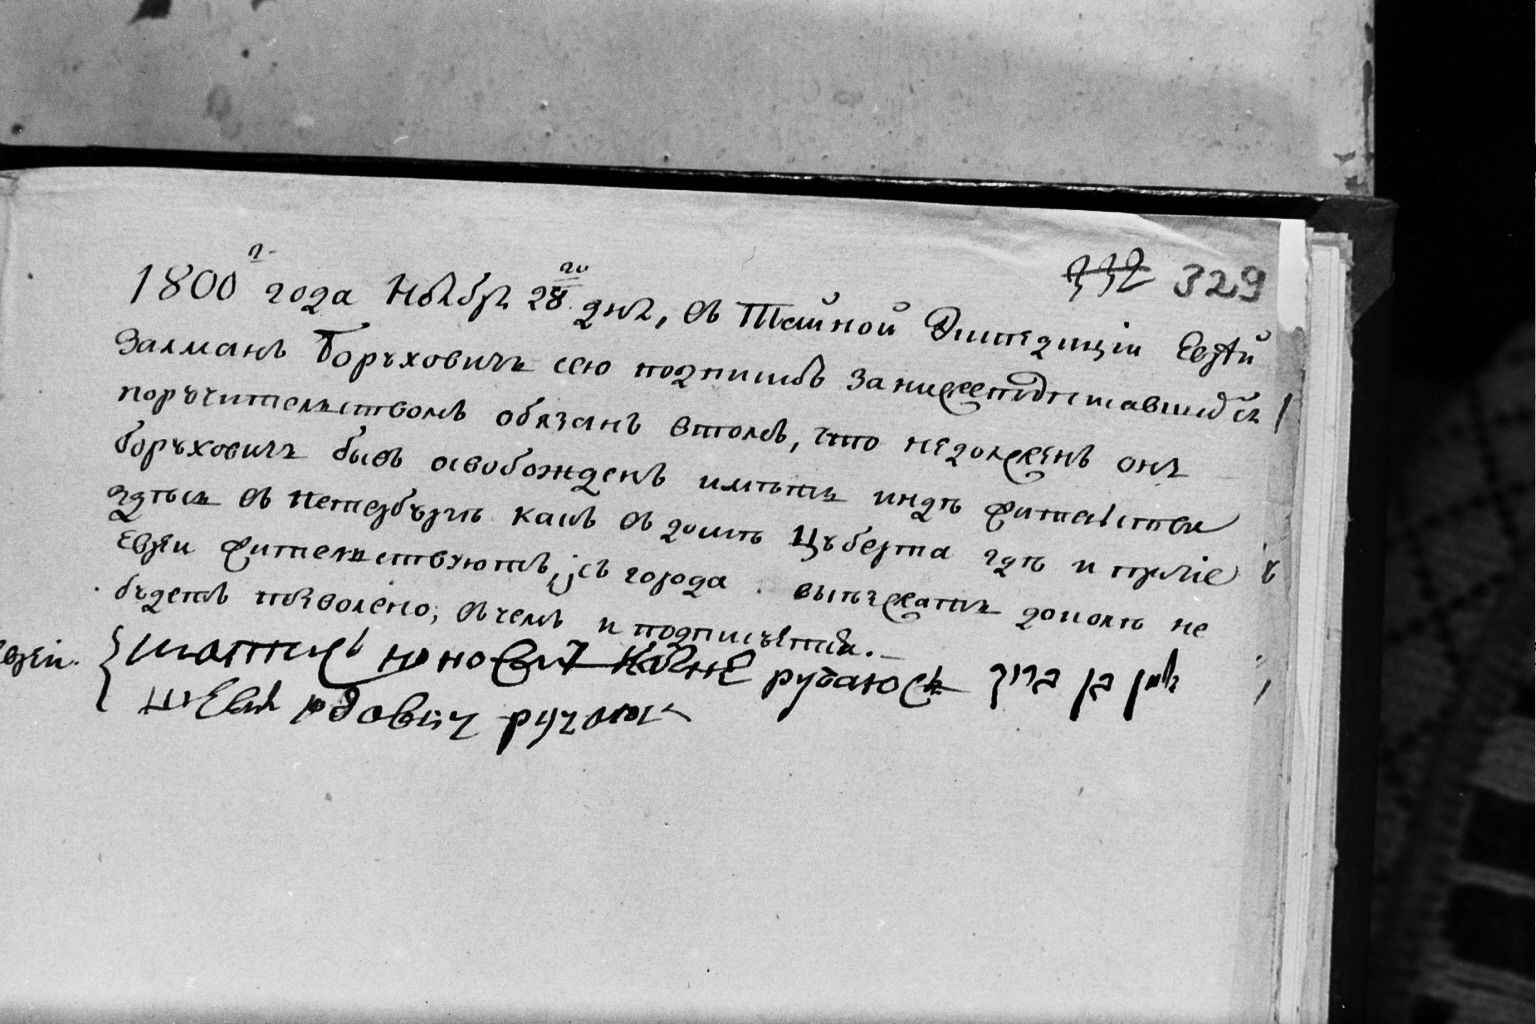 332 329
1800г. года Ноября 28го дня, въ Тайной Экспедиціи Еврей
Залманъ Боруховичъ сею подпискою за нижеподписавшимся
поручительствомъ обязанъ втомъ, что недолженъ онъ
Боруховичъ бывъ освобожденъ имѣть индѣ жительства
здѣсь въ Петербургѣ какъ въ домѣ где и прочіе
Евреи жительствуютъ, и съ города выѣзжать доколѣ не
будетъ позволено, вчемъ и подписуется.
Евреи. ручаюсь זלמן בן ברוך
ручаюсь